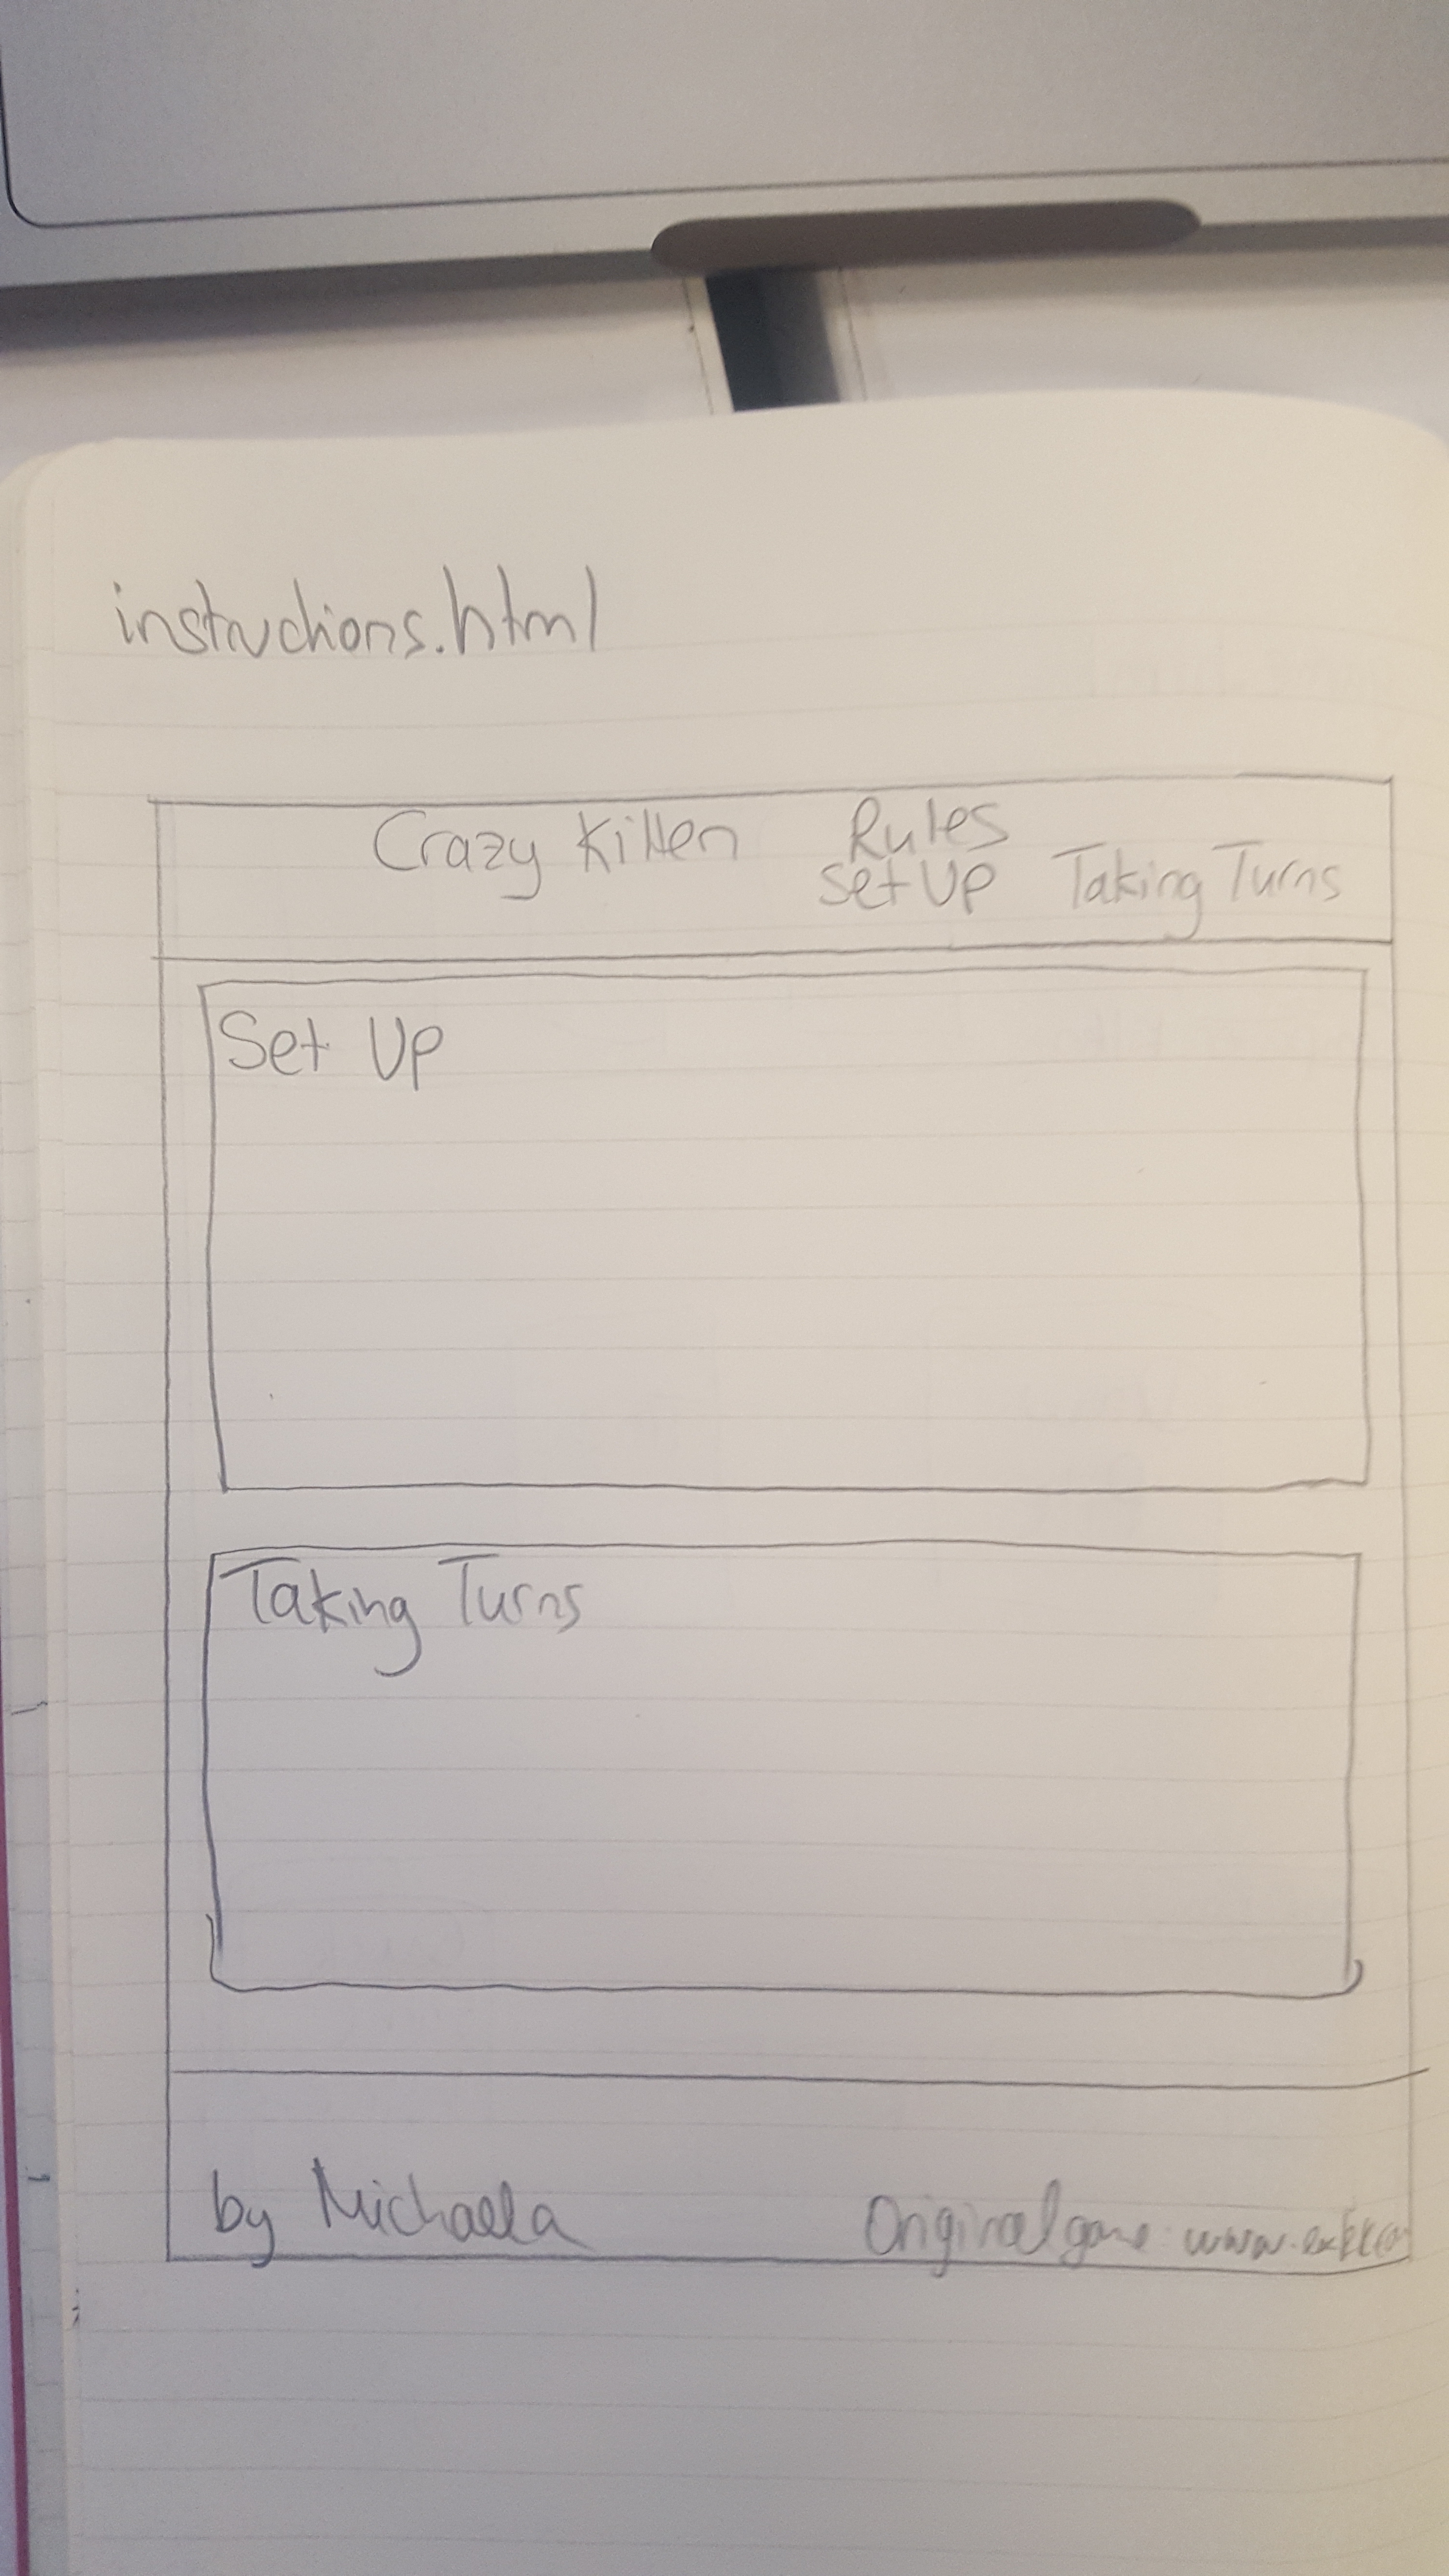 instructions.html
Crazy Kitten Rules
Set Up Taking Turns
Set Up
Taking Turns
by Michaela Original game: www.